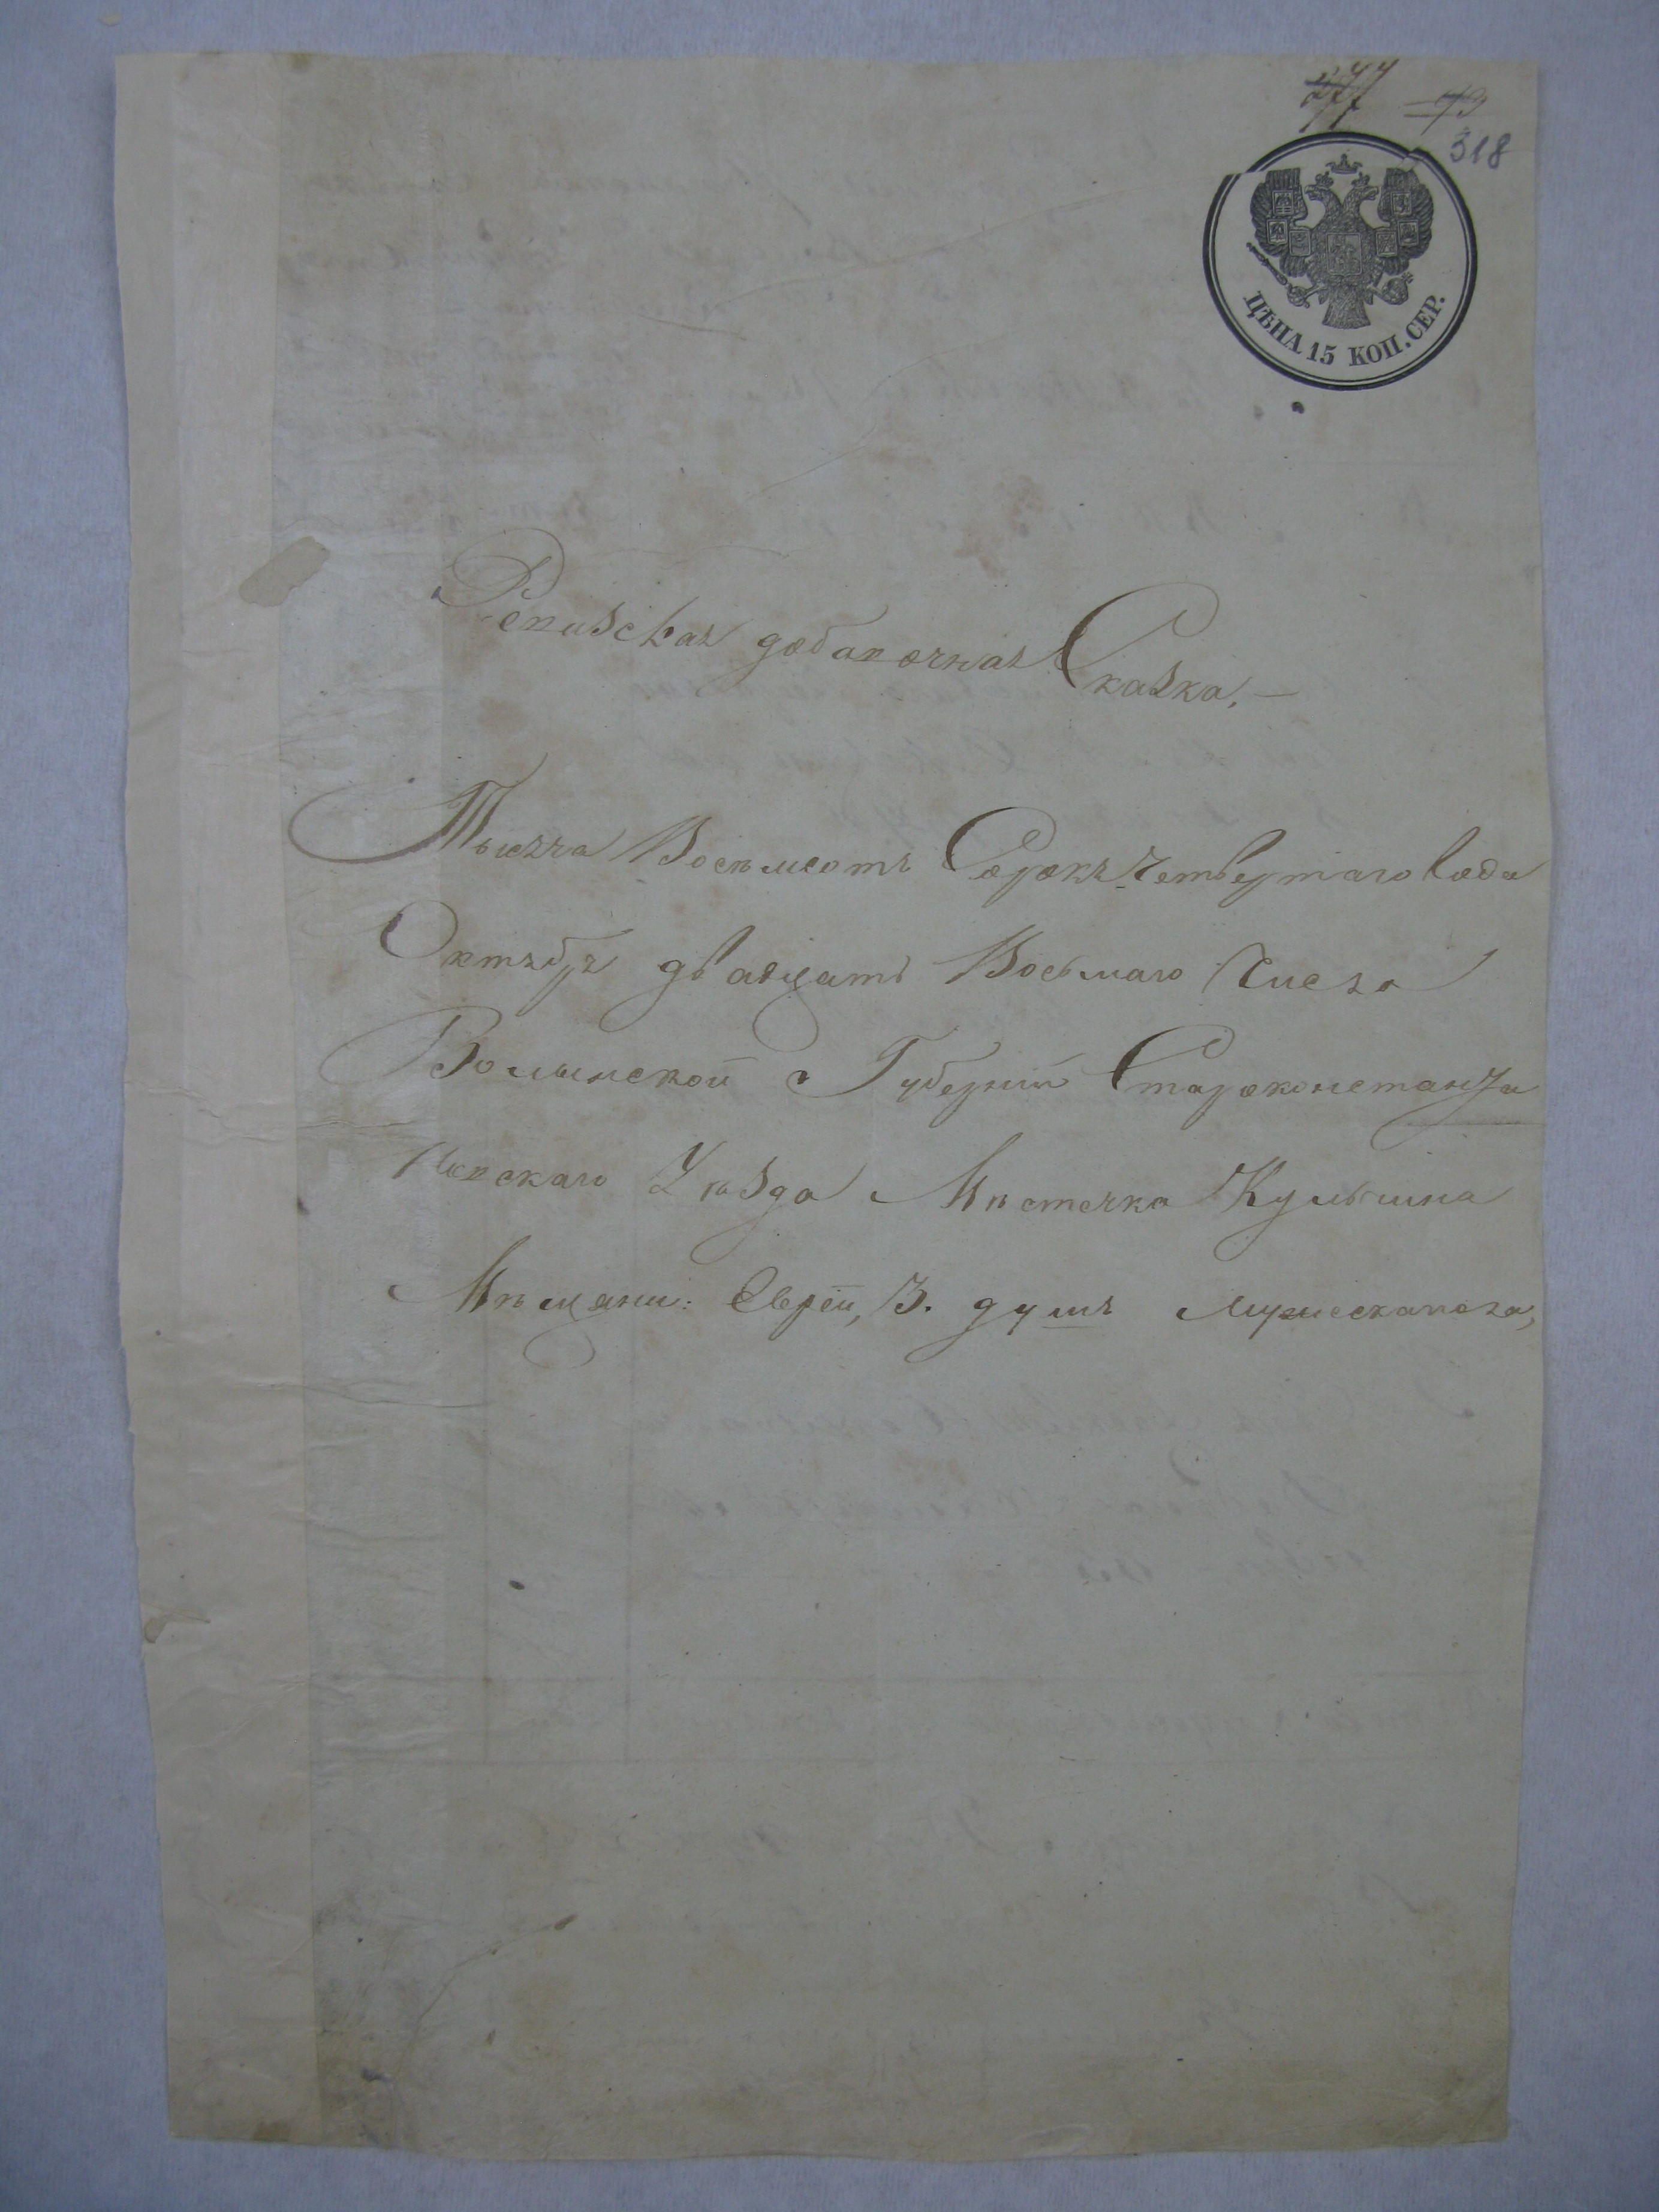 277 49
318
ЦѢНА 15 КОП. СЕР.
Ревизская добавочная Сказка, —
Тысяча Восемьсотъ Сорокъ Четвертаго Года
Октября двадцать Восьмаго Числа
Волынской Губерніи Староконстанти
новскаго Уѣзда Мѣстечка Кульчина
Мѣщани: Еврей, 3. душъ Мужескапола,